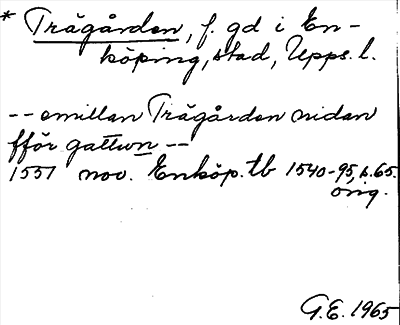 * Trägården, f. gd i En-
köping, stad, Upps. l.
-- emillan Trägården sidan
fför gattwn --
1551 nov. Enköp. tb 1540-95, s. 65.
orig.
G.E. 1965